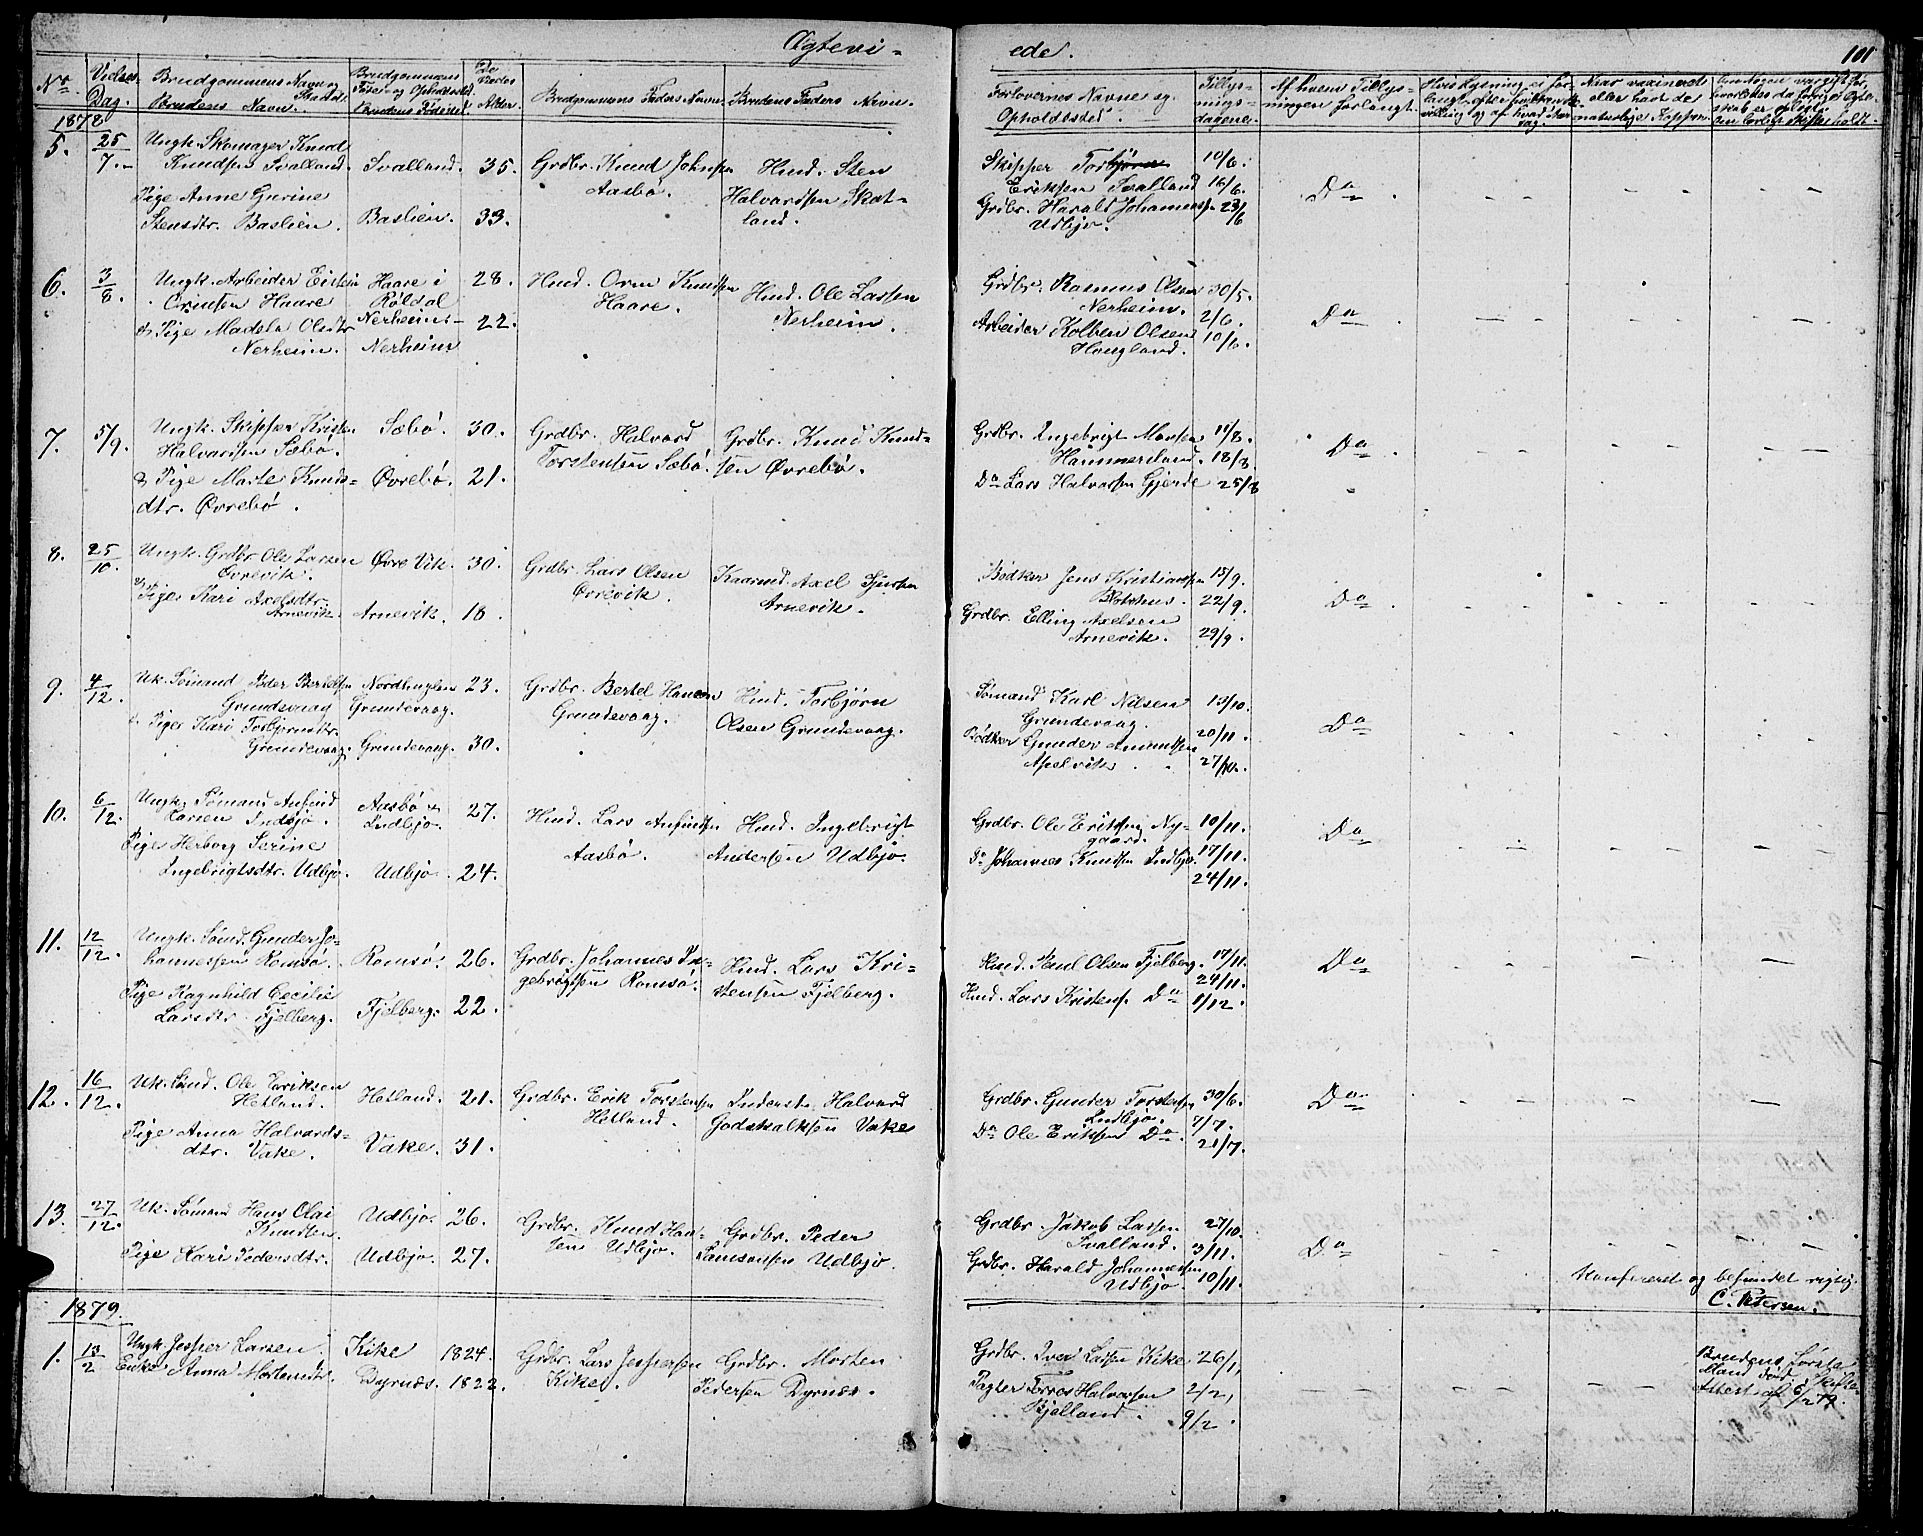 Ægtevi-
ede.
101
No
Vielses Dag.
Brudgommens Navn og Stand
Brudens Navn.
Brudgommens Føde- og Opholdssted.
Brudens Fødested.
De Viedes Alder.
Brudgommens Faders Navn.
Brudens Faders Navn.
Forlovernes Navne og Opholdssted.
Tillys-
nings-
dagene.
Af hvem Tillys-
ningen forlangt.
1878
5. 25/7.
Ungk. Skomager Knud
Knudsen Svalland.
Svalland. 35.
Pige Anne Gurine
Stensdtr. Baslien.
Baslien. 33.
Grdbr. Knud Johnsen
Aasbö.
Hmd. Sten
Halvardsen Skat-
land.
Skipper Torbjörn
Eriksen Svalland
Grdbr. Harald Johannes.
Udbjo.
10/6.
16/6.
23/6
Do
6. 3/8.
Ungk. Arbeider Eistein
Ormsen Haare
Haare i
Röldal
28.
& Pige Madela Olsdtr.
Nerheim.
Nerheim
Nerheim
22.
Hmd. Orm Knudsen
Haare.
Hmd. Ole Larsen
Nerheim.
Grdbr. Rasmus Olsen
Nerheim.
Arbeider Kolben Olsen
Hougland.
30/5.
2/6.
10/6.
Do
7. 5/9.
Ungk. Skipper Kristen
Halvardsen Sæbö.
Sæbö. 30.
& Pige Marte Knuds-
dtr. Øvrebö.
Øvrebö. 21.
Grdbr. Halvard
Torstensen Sæbö.
Grdbr. Knud Knud-
sen Øvrebö.
Grdbr. Ingebrigt Monsen
Hammersland.
Do Lars Halvorsen Gjerde
11/8.
18/8.
25/8
Do
8. 25/10.
Ungk. Grdbr. Ole Larsen
Övrevik.
Øvre Vik. 30.
& Pige Kari Axelsdtr.
Arnevik.
Arnevik. 18.
Grdbr. Lars Olsen
Övrevik.
Kaarmd. Axel Sjursen
Arnevik.
Bödker Jens Kristiansen
Grdbr. Elling Axelsen
Arnevik.
15/9.
22/9.
29/9.
Do
9. 4/12.
Uk. Sömand Peder Bertelsen
Grundevaag
Nordhuglen
Grundevaag.
23.
& Pige Kari Torbjörnsdtr.
Grundevaag.
Grundevaag. 30.
Grdbr. Bertel Hansen
Grundevaag.
Hmd. Torbjörn
Olsen Grundevaag.
Sömand Karl Nilsen
Grundevaag.
Bödker Gunder Amundsen
Apelvik
13/10.
20/11.
27/10.
Do
10. 6/12.
Ungk. Sömand Anfind
Larsen Indbjo.
Aasbö
Indbjo.
27.
Pige Herborg Serine
Ingebrigtsdtr. Udbjo.
Udbjo 24.
Hmd. Lars Anfindsen
Aasbö.
Hmd. Ingebrigt
Andersen Udbjo.
Grdbr. Ole Eriksen Ny-
gaard.
Do Johannes Knudsen Indbjo.
10/11.
17/11.
24/11.
Do
11. 12/12.
Ungk. Sömd. Gunder Jo-
hannessen Romsö.
Romsö. 26.
Pige Ragnhild Cecilie
Larsdtr. Fjelberg.
Fjelberg. 22.
Grdbr. Johannes In-
gebrigtsen Romsö.
Hmd. Lars Kri-
stensen Fjelberg.
Hmd. Paul Olsen Fjelberg.
Hmd. Lars Kristens. Do
17/11.
24/11.
1/12.
Do
12. 16/12.
Uk. Sömd. Ole Eriksen
Hetland.
Hetland. 21.
Pige Anna Halvards-
dtr. Vake.
Vake. 31.
Grdbr. Erik Torstensen
Hetland.
Inderst. Halvard
Godskalksen Vake
Grdbr. Gunder Torstensen
Indbjo.
Do Ole Eriksen Do
30/6.
7/7.
21/7.
Do
13. 27/12.
Uk. Sömand Hans Olai
Knudsen.
Udbjo. 26.
Pige Kari Pedersdtr.
Udbjo. 27.
Grdbr. Knud Han-
sen Udbjo.
Grdbr. Peder
Samsonsen Udbjo.
Grdbr. Jakob Larsen
Svalland.
Grdbr. Harald Johannessen
Udbjo.
27/10.
3/11.
10/11.
Do
Konfereret og befundet rigtig.
C. Petersen.
1879.
1. 13/2
Ungk. Jesper Larsen.
Enke Anna Mortensdtr.
Kike 1824.
Dyrnæs. 1822.
Grdbr. Lars Jespersen
Kike.
Grdbr. Morten
Pedersen Dyrnæs.
Grdbr. Iver Larsen Kike
Pagter Torres Halvorsen
Bjelland.
26/1,
2/2,
9/2.
Brudens første
Mand død. Skifte
Attest af 6/2 79.